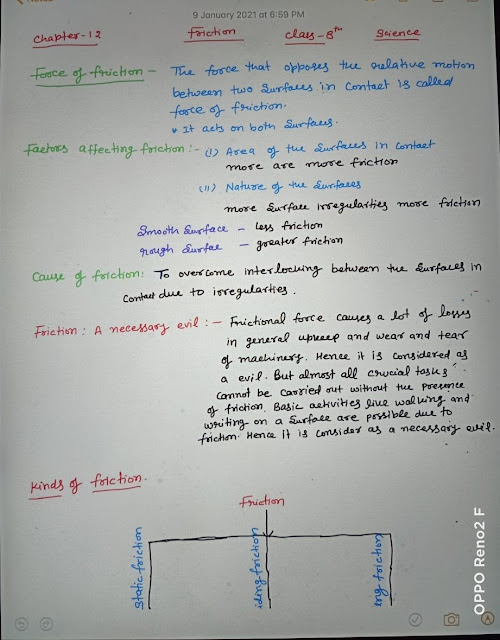 9 January 2021 at 6:59 PM
Chapter-12 Friction class-8th Science
Force of friction - The force that opposes the relative motion
between two surfaces in contact is called
force of friction.
* It acts on both surfaces.
Factors affecting friction:- (i) Area of the surfaces in contact
more are more friction
(ii) Nature of the surfaces
more surface irregularties more friction
Smooth surface - less friction
rough surfae - greater friction
Cause of friction: To overcome interlocking between the surfaces in
contact due to irregularties.
Friction: A necessary evil:- Frictional force causes a lot of losses
in general upkeep and wear and tear
of machinery. Hence it is considered as
a evil. But almost all crucial tasks
cannot be carried out without the presence
of friction. Basic activities like walking and
writing on a surface are possible due to
friction. Hence it is consider as a necessary evil.
Kinds of friction.
Friction
Static friction
iding friction
ing friction
OPPO Reno2 F